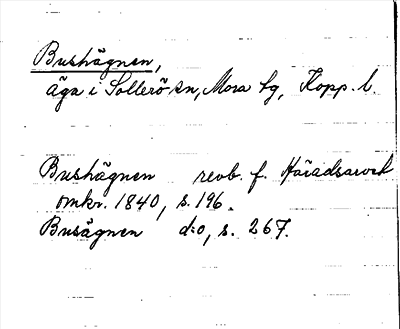 Bushägnen,
äga i Sollerö sn, Mora tg, Kopp. l.
Bushägnen revb. f. Häradsarvet
omkr. 1840, s. 196.
Busägnen d:o, s. 267.